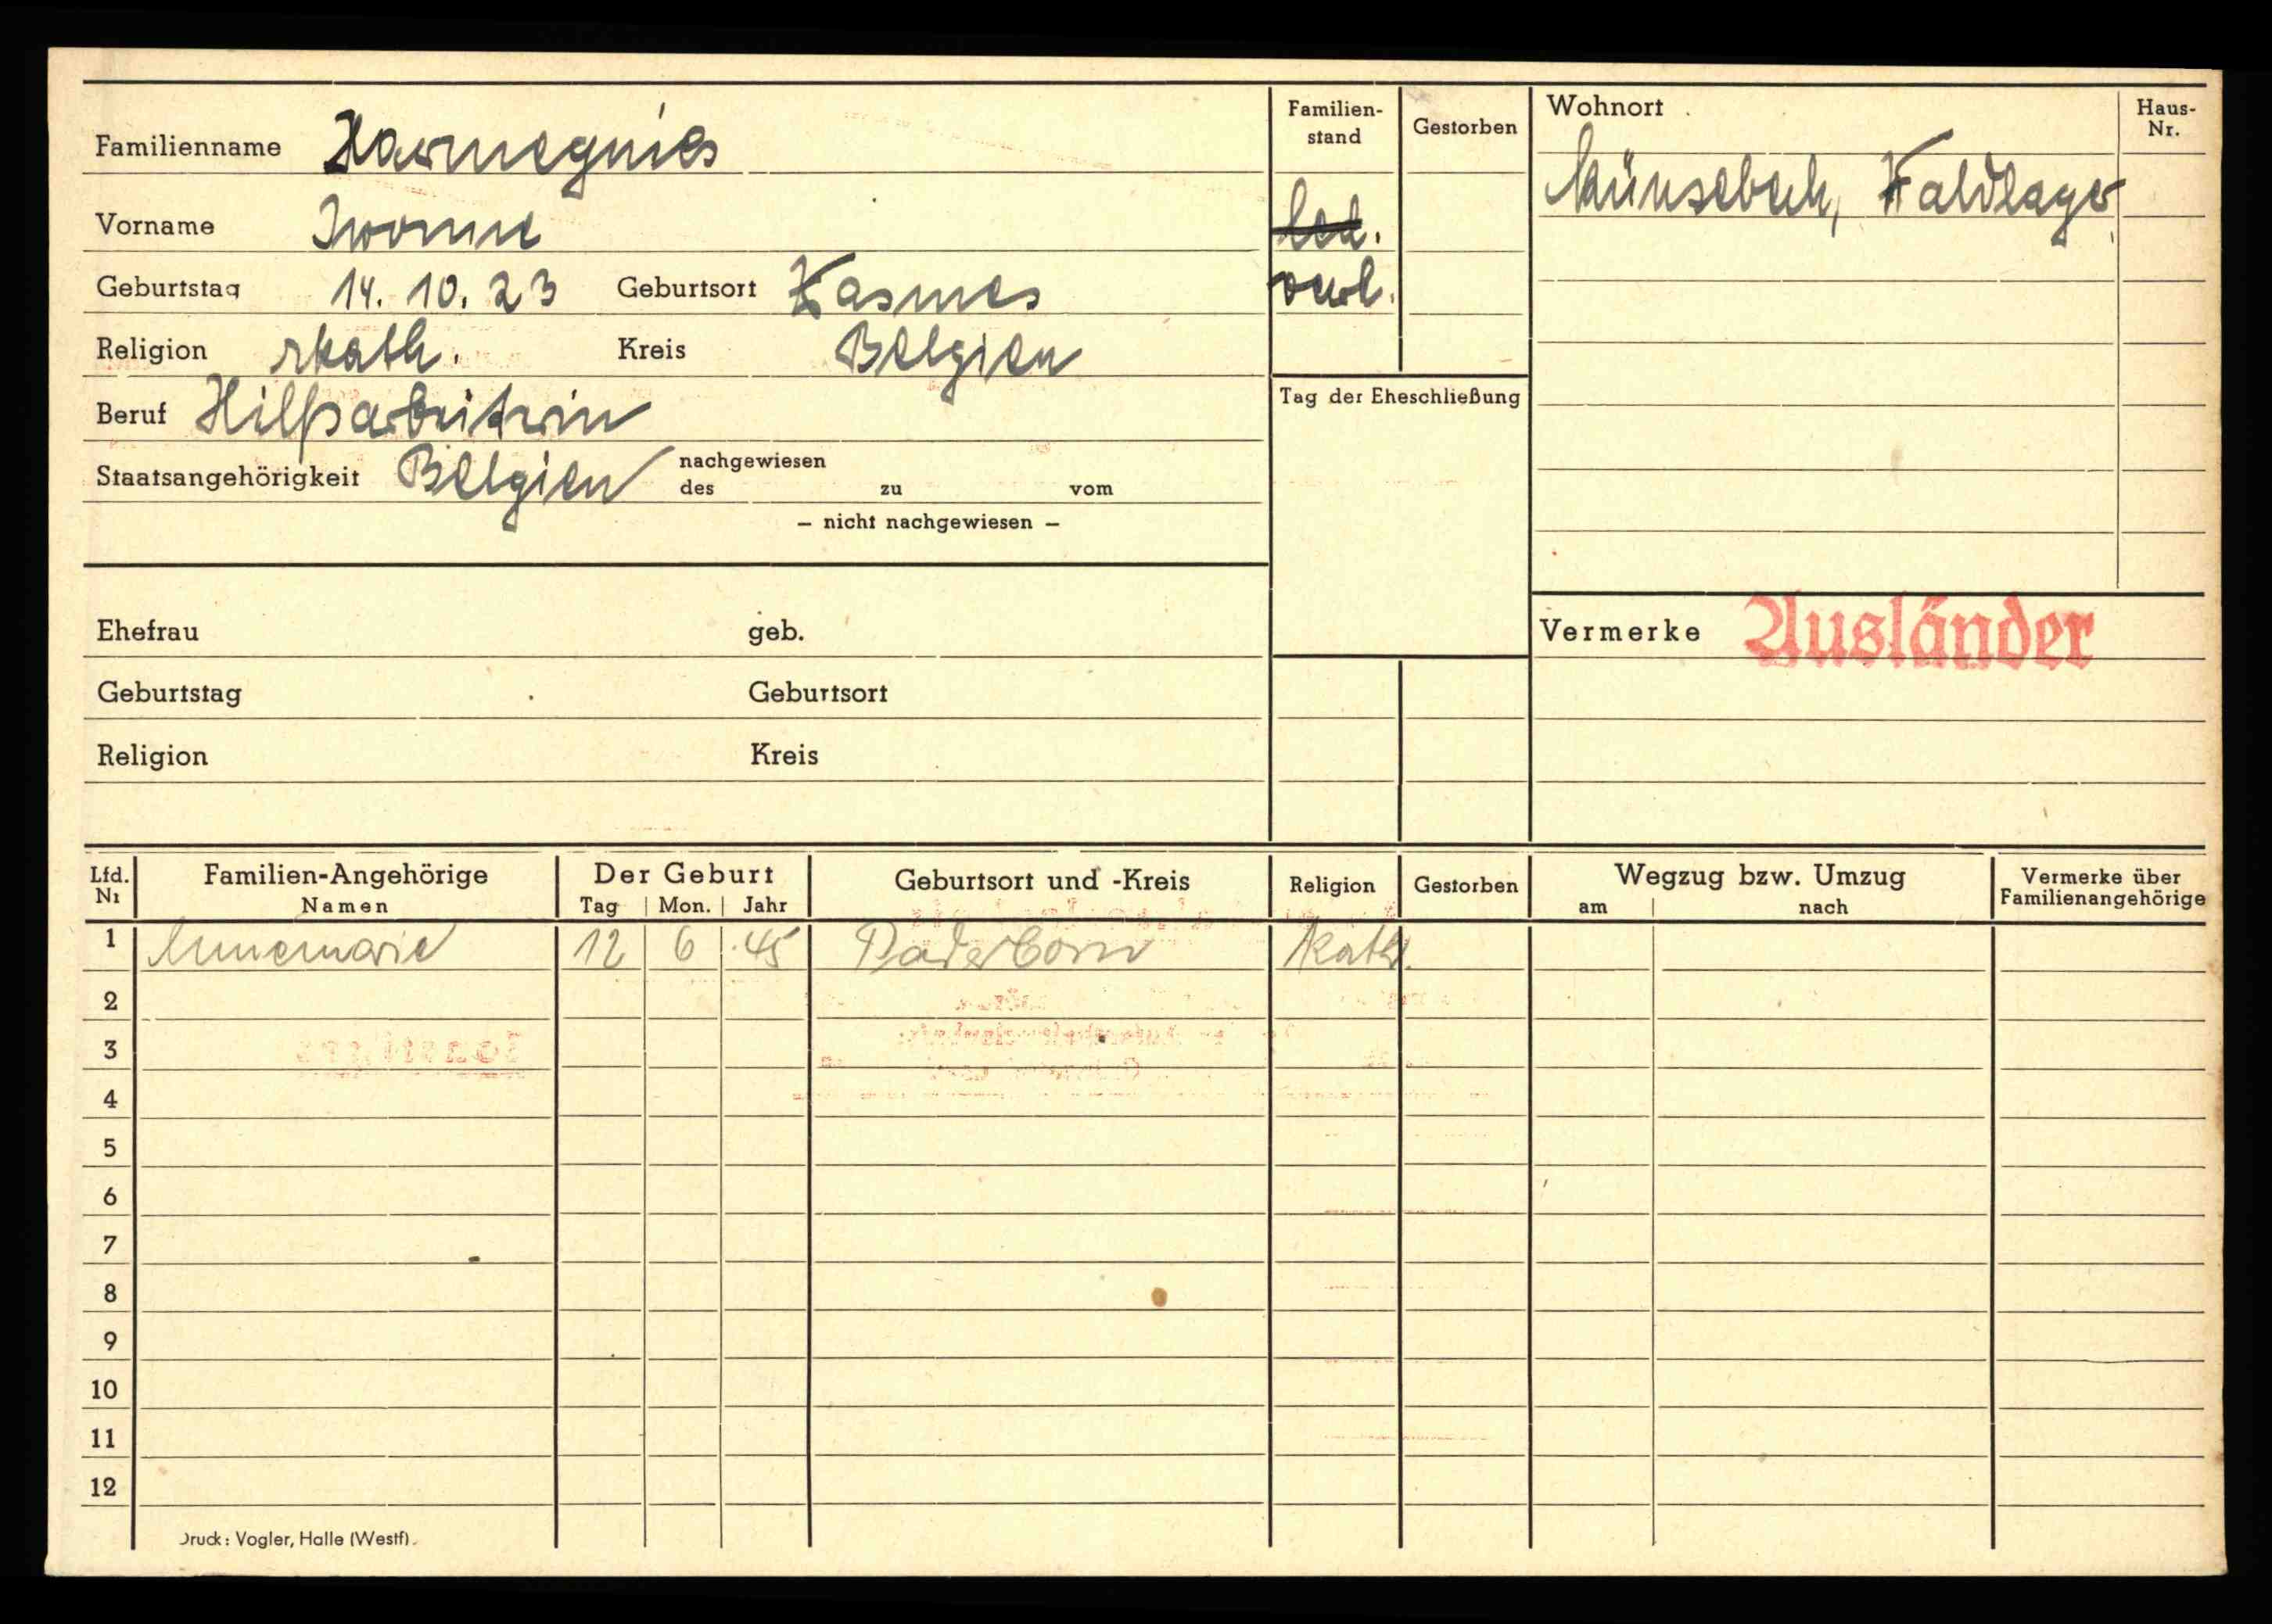 Familienname Harmegnies
Vorname Ivonne
Geburtstag 14. 10. 23 Geburtsort Wasmes
Religion rkath. Kreis Belgien
Beruf Hilfsarbeiterin
Staatsangehörigkeit Belgien nachgewiesen
des zu vom
– nicht nachgewiesen –
Familien-
stand
led.
verl.
Gestorben
Tag der Eheschließung
Wohnort
Haus-
Nr.
Waldlager
Vermerke Ausländer
Ehefrau geb.
Geburtstag Geburtsort
Religion Kreis
Lfd.
Nr
Familien-Angehörige
Namen
Der Geburt
Tag Mon. Jahr
Geburtsort und -Kreis
Religion
Gestorben
Wegzug bzw. Umzug
am nach
Vermerke über
Familienangehörige
1 Annemarie 12 6 45 Paderborn rkath.
2
3
4
5
6
7
8
9
10
11
12
Druck: Vogler, Halle (Westf).